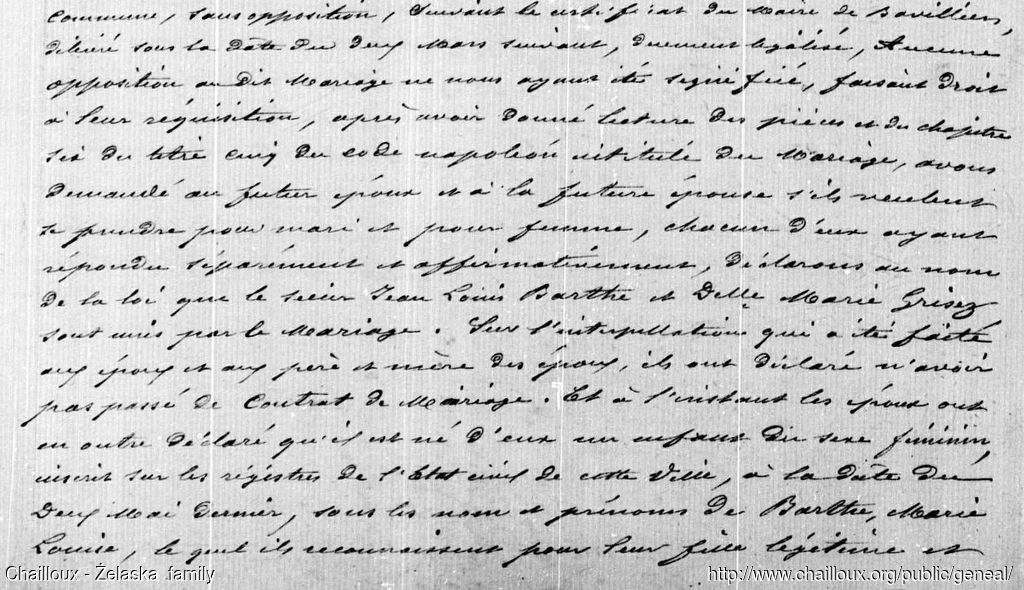 commune, sans opposition, suivant le certificat du Maire de Bavilliers,
délivré sous la date du deux Mars suivant, duement légalisé, Aucune
opposition au dit Mariage ne nous ayant été signifiée, faisant droit
à leur réquisition, après avoir donné lecture des pièces et du chapitre
six du titre cinq du code napoléon intitulé du Mariage, avons
demandé au futur époux et à la future épouse s'ils veulent
se prendre pour mari et pour femme, chacun d'eux ayant
répondu séparément et affirmativement, déclarons au nom
de la loi que le sieur Jean Louis Barthe et Delle Marie Grisez
sont unis par le Mariage. Sur l'interpellation qui a été faite
aux époux et aux père et mère des époux, ils ont déclaré n'avoir
pas passé de Contrat de Mariage. Et à l'instant les époux ont
en outre déclaré qu'il est né d'eux un enfant du sexe féminin,
inscrit sur les régistres de l'Etat civil de cette Ville, à la date du
Deux Mai dernier, sous les nom et prénoms de Barthe, Marie
Louise, le quel ils reconnaissent pour leur fille légitime et
Chailloux - Żelaska family
http://www.chailloux.org/public/geneal/